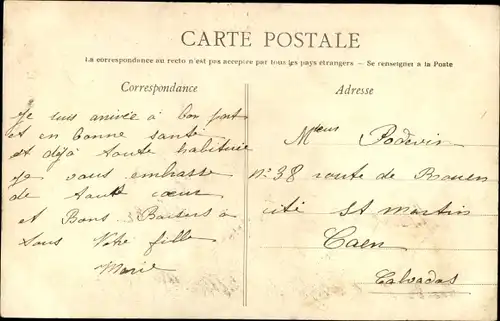 CARTE POSTALE
La correspondance au recto n'est pas acceptée par tous les pays étrangers - Se renseigner à la Poste
Correspondance
Adresse
Je suis arrivée à bon port
et en bonne santé
et déjà toute habituée
Je vous embrasse
de tout cœur
et Bons Baisers à
tous Votre fille
Marie
Podevin
N° 38 route de Rouen
cité St Martin
Caen
Calvados